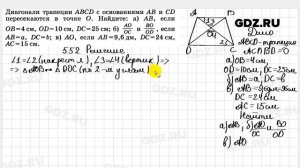 Диагонали трапеции ABCD с основаниями AB и CD
пересекаются в точке O. Найдите: а) AB, если
OB=4 см, OD=10 см, DC=25 см; б) AO/OC и BO/OD, если
AB=a, DC=b; в) AO, если AB=9,6 дм, DC=24 см,
AC=15 см.
GDZ.RU
552 Решение
∠1=∠2 (накрест л), ∠3=∠4 (вертик) =>
=> △ABO ~ △DOC (по 2-м углам)
A
B
D
C
Дано
ABCD-трапеция
AC∩BD=O
а) OB=4см,
OD=10см, DC=25см
б) AB=a, DC=b
AC=15см
Найти
а) AB,
в) AO
GDZ.RU